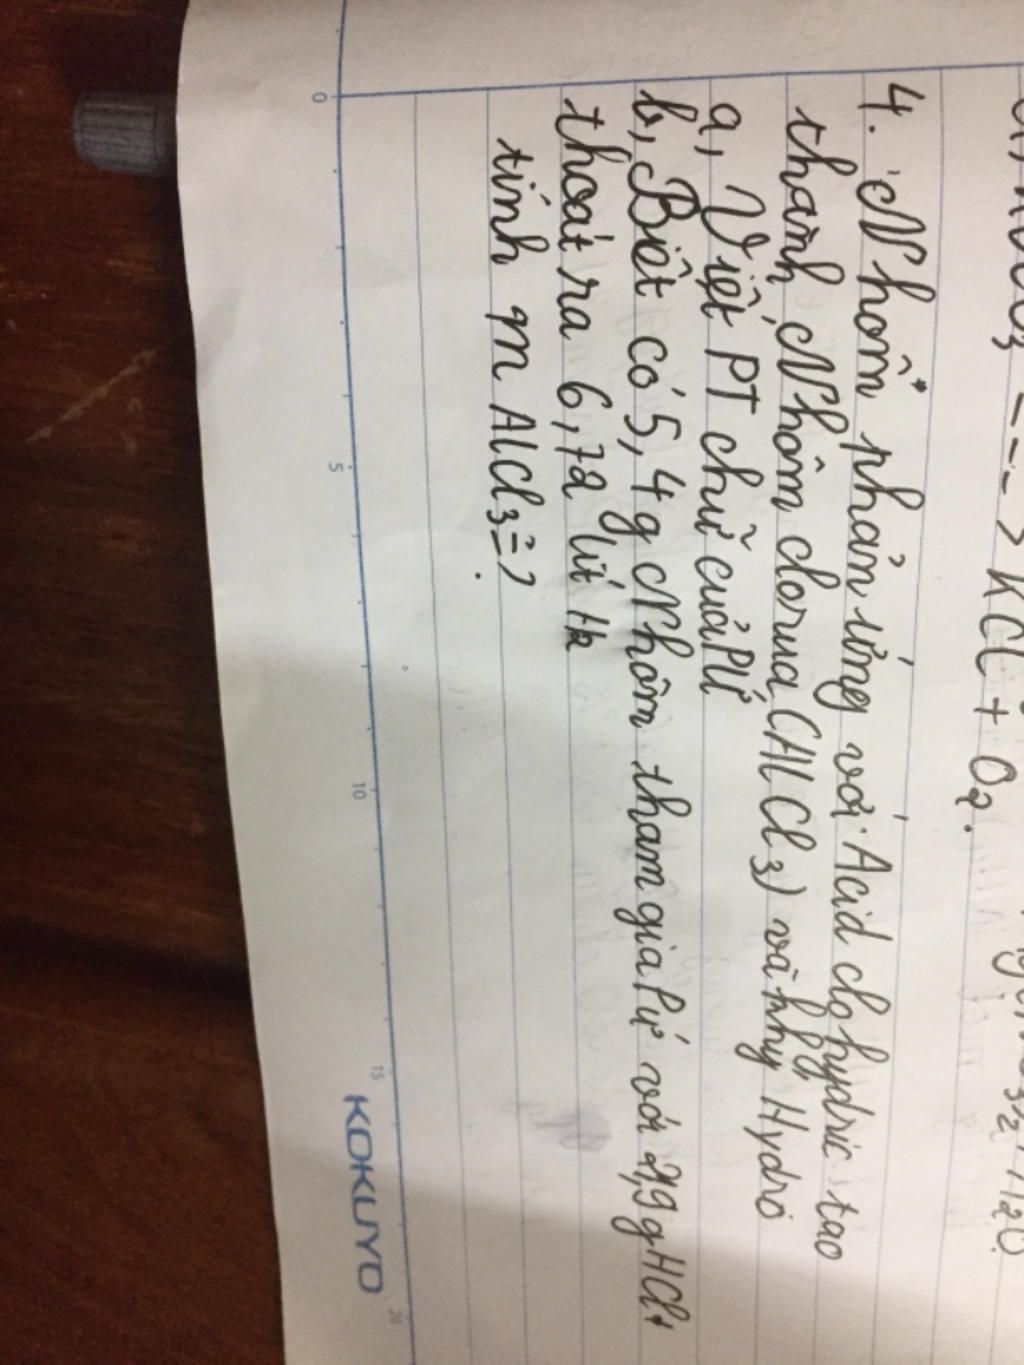 = --> KCl + O2.
4. Nhôm phản ứng với Acid clohydric tạo
thành Nhôm clorua (AlCl3) và khý Hydro
a, Viết PT chữ của PƯ
b, Biết có 5,4g Nhôm tham gia PƯ với 21,9g HCl,
thoát ra 6,72 lít H2
tính m AlCl3 = ?
0 5 10 15 20
KOKUYO